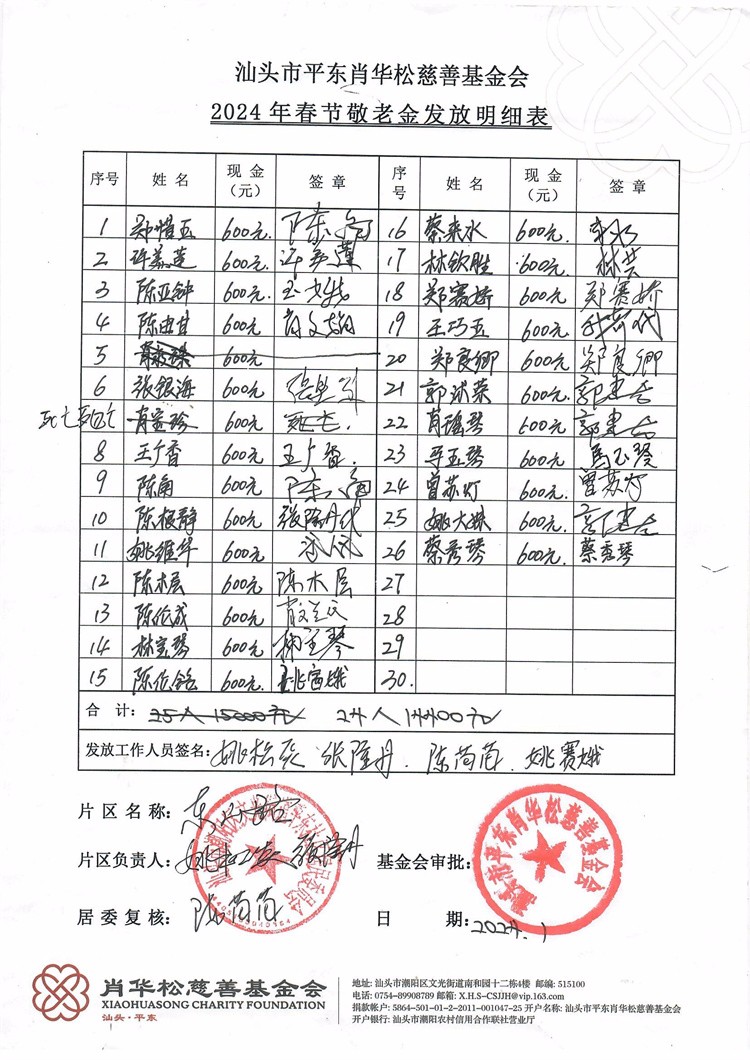 汕头市平东肖华松慈善基金会
2024年春节敬老金发放明细表
序号 姓名 现金（元） 签章 序号 姓名 现金（元） 签章
1 郑惜玉 600元. 陈 16 蔡来水 600元.
2 许慕莲 600元. 许 莲 17 林钦胜 600元. 林
3 陈亚钟 600元. 18 郑赛娇 600元. 郑赛娇
4 陈由甘 600元. 肖文娟 19 王巧玉 600元. 代
5 600元 20 郑良卿 600元. 郑良卿
6 张银海 600元. 张 21 郭沭荣 600元.
死亡 肖宝珍 600元 死亡 22 肖瑶琴 600元.
8 王广香 600元 王广香. 23 玉琴 600元. 马玉琴
9 陈角 600元 陈 24 曾苏灯 600元. 曾苏灯
10 陈根静 600元. 张隆丹代 25 姚大妹 600元.
11 姚维华 600元. 26 蔡秀琴 600元. 蔡秀琴
12 陈木层 600元 陈木层 27
13 陈伦成 600元. 28
14 林宝琴 600元. 琴 29
15 陈伦铭 600元. 姚宫娥 30.
合 计： 25人15000元 24人14400元
发放工作人员签名： 姚松 张隆丹. 陈茼茼. 姚赛娥
片区名称： 东
片区负责人： 姚 张隆丹 基金会审批：
居委复核： 陈茼茼 日 期： 2024.1
汕头市平东肖华松慈善基金会
肖华松慈善基金会
XIAOHUASONG CHARITY FOUNDATION
汕头·平东
地址: 汕头市潮阳区文光街道南和园十二栋4楼 邮编: 515100
电话: 0754-89908789 邮箱: X.H.S-CSJJH@vip.163.com
捐款帐户: 5864-501-01-2-2011-001047-25 开户名称: 汕头市平东肖华松慈善基金会
开户银行: 汕头市潮阳农村信用合作联社营业厅